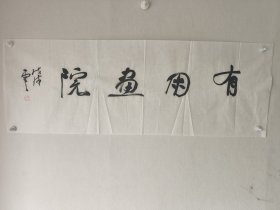 有用画院